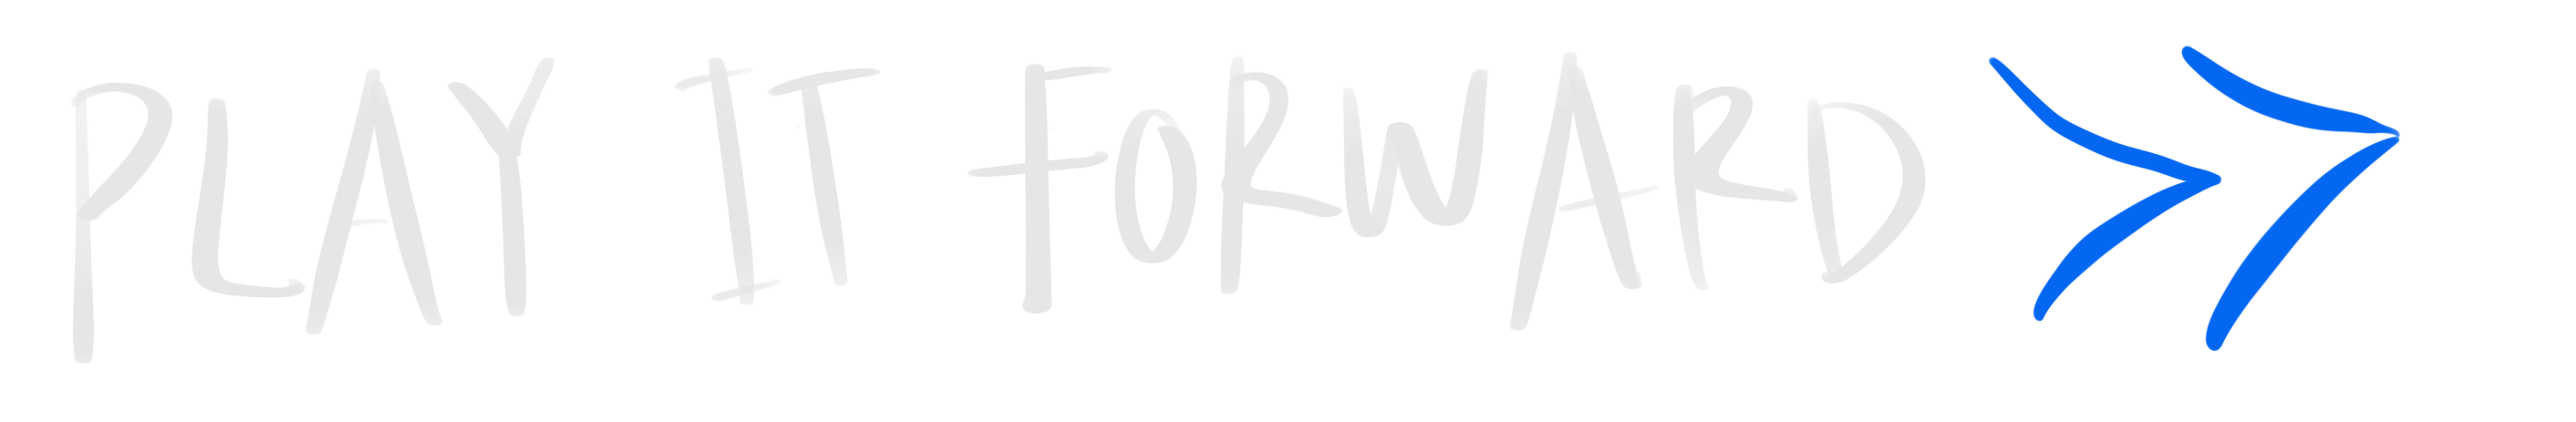 PLAY IT FORWARD >>